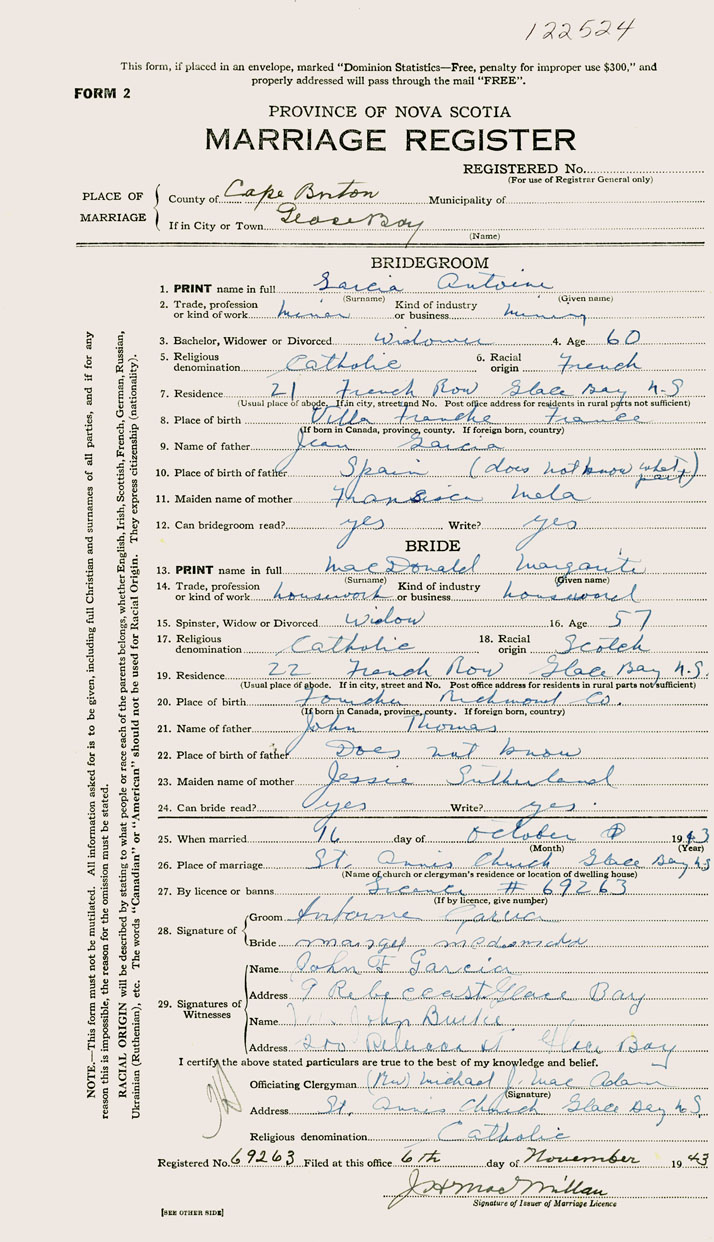 122524
This form, if placed in an envelope, marked "Dominion Statistics—Free, penalty for improper use $300," and
properly addressed will pass through the mail "FREE".
FORM 2
PROVINCE OF NOVA SCOTIA
MARRIAGE REGISTER
REGISTERED No.
(For use of Registrar General only)
PLACE OF MARRIAGE
County of Cape Breton Municipality of
If in City or Town Glace Bay
(Name)
BRIDEGROOM
1. PRINT name in full Garcia Antoine
(Surname) (Given name)
2. Trade, profession or kind of work miner Kind of industry or business mining
3. Bachelor, Widower or Divorced Widower 4. Age 60
5. Religious denomination Catholic 6. Racial origin French
7. Residence 21 French Row Glace Bay N.S
(Usual place of abode. If in city, street and No. Post office address for residents in rural parts not sufficient)
8. Place of birth Villa Franche France
(If born in Canada, province, county. If foreign born, country)
9. Name of father Jean Garcia
10. Place of birth of father Spain (does not know what part)
11. Maiden name of mother Fransisca Mela
12. Can bridegroom read? yes Write? yes
BRIDE
13. PRINT name in full MacDonald Margarite
(Surname) (Given name)
14. Trade, profession or kind of work housework Kind of industry or business
15. Spinster, Widow or Divorced Widow 16. Age 57
17. Religious denomination Catholic 18. Racial origin Scotch
19. Residence 22 French Row Glace Bay N.S.
(Usual place of abode. If in city, street and No. Post office address for residents in rural parts not sufficient)
20. Place of birth Richmond Co.
(If born in Canada, province, county. If foreign born, country)
21. Name of father John Thomas
22. Place of birth of father Does not know
23. Maiden name of mother Jessie Sutherland
24. Can bride read? yes Write? yes.
25. When married day of October 1943
(Month) (Year)
26. Place of marriage St. Annis Church Glace Bay N.S
(Name of church or clergyman's residence or location of dwelling house)
27. By licence or banns Licence # 69263
(If by licence, give number)
28. Signature of
Groom Garcia
Bride
29. Signatures of Witnesses
Name John F Garcia
Address 9 Rebecca st Glace Bay
Name John Burke
Address 200 Rebecca st Glace Bay
I certify the above stated particulars are true to the best of my knowledge and belief.
Officiating Clergyman (Rev) Michael J. MacAdam
(Signature)
Address St. Annis Church Glace Bay N.S.
Religious denomination Catholic
Registered No. 69263 Filed at this office 6th day of November 1943
J H MacMillan
Signature of Issuer of Marriage Licence
[SEE OTHER SIDE]
NOTE.—This form must not be mutilated. All information asked for is to be given, including full Christian and surnames of all parties, and if for any
reason this is impossible, the reason for the omission must be stated.
RACIAL ORIGIN will be described by stating to what people or race each of the parents belongs, whether English, Irish, Scottish, French, German, Russian,
Ukrainian (Ruthenian), etc. The words "Canadian" or "American" should not be used for Racial Origin. They express citizenship (nationality).